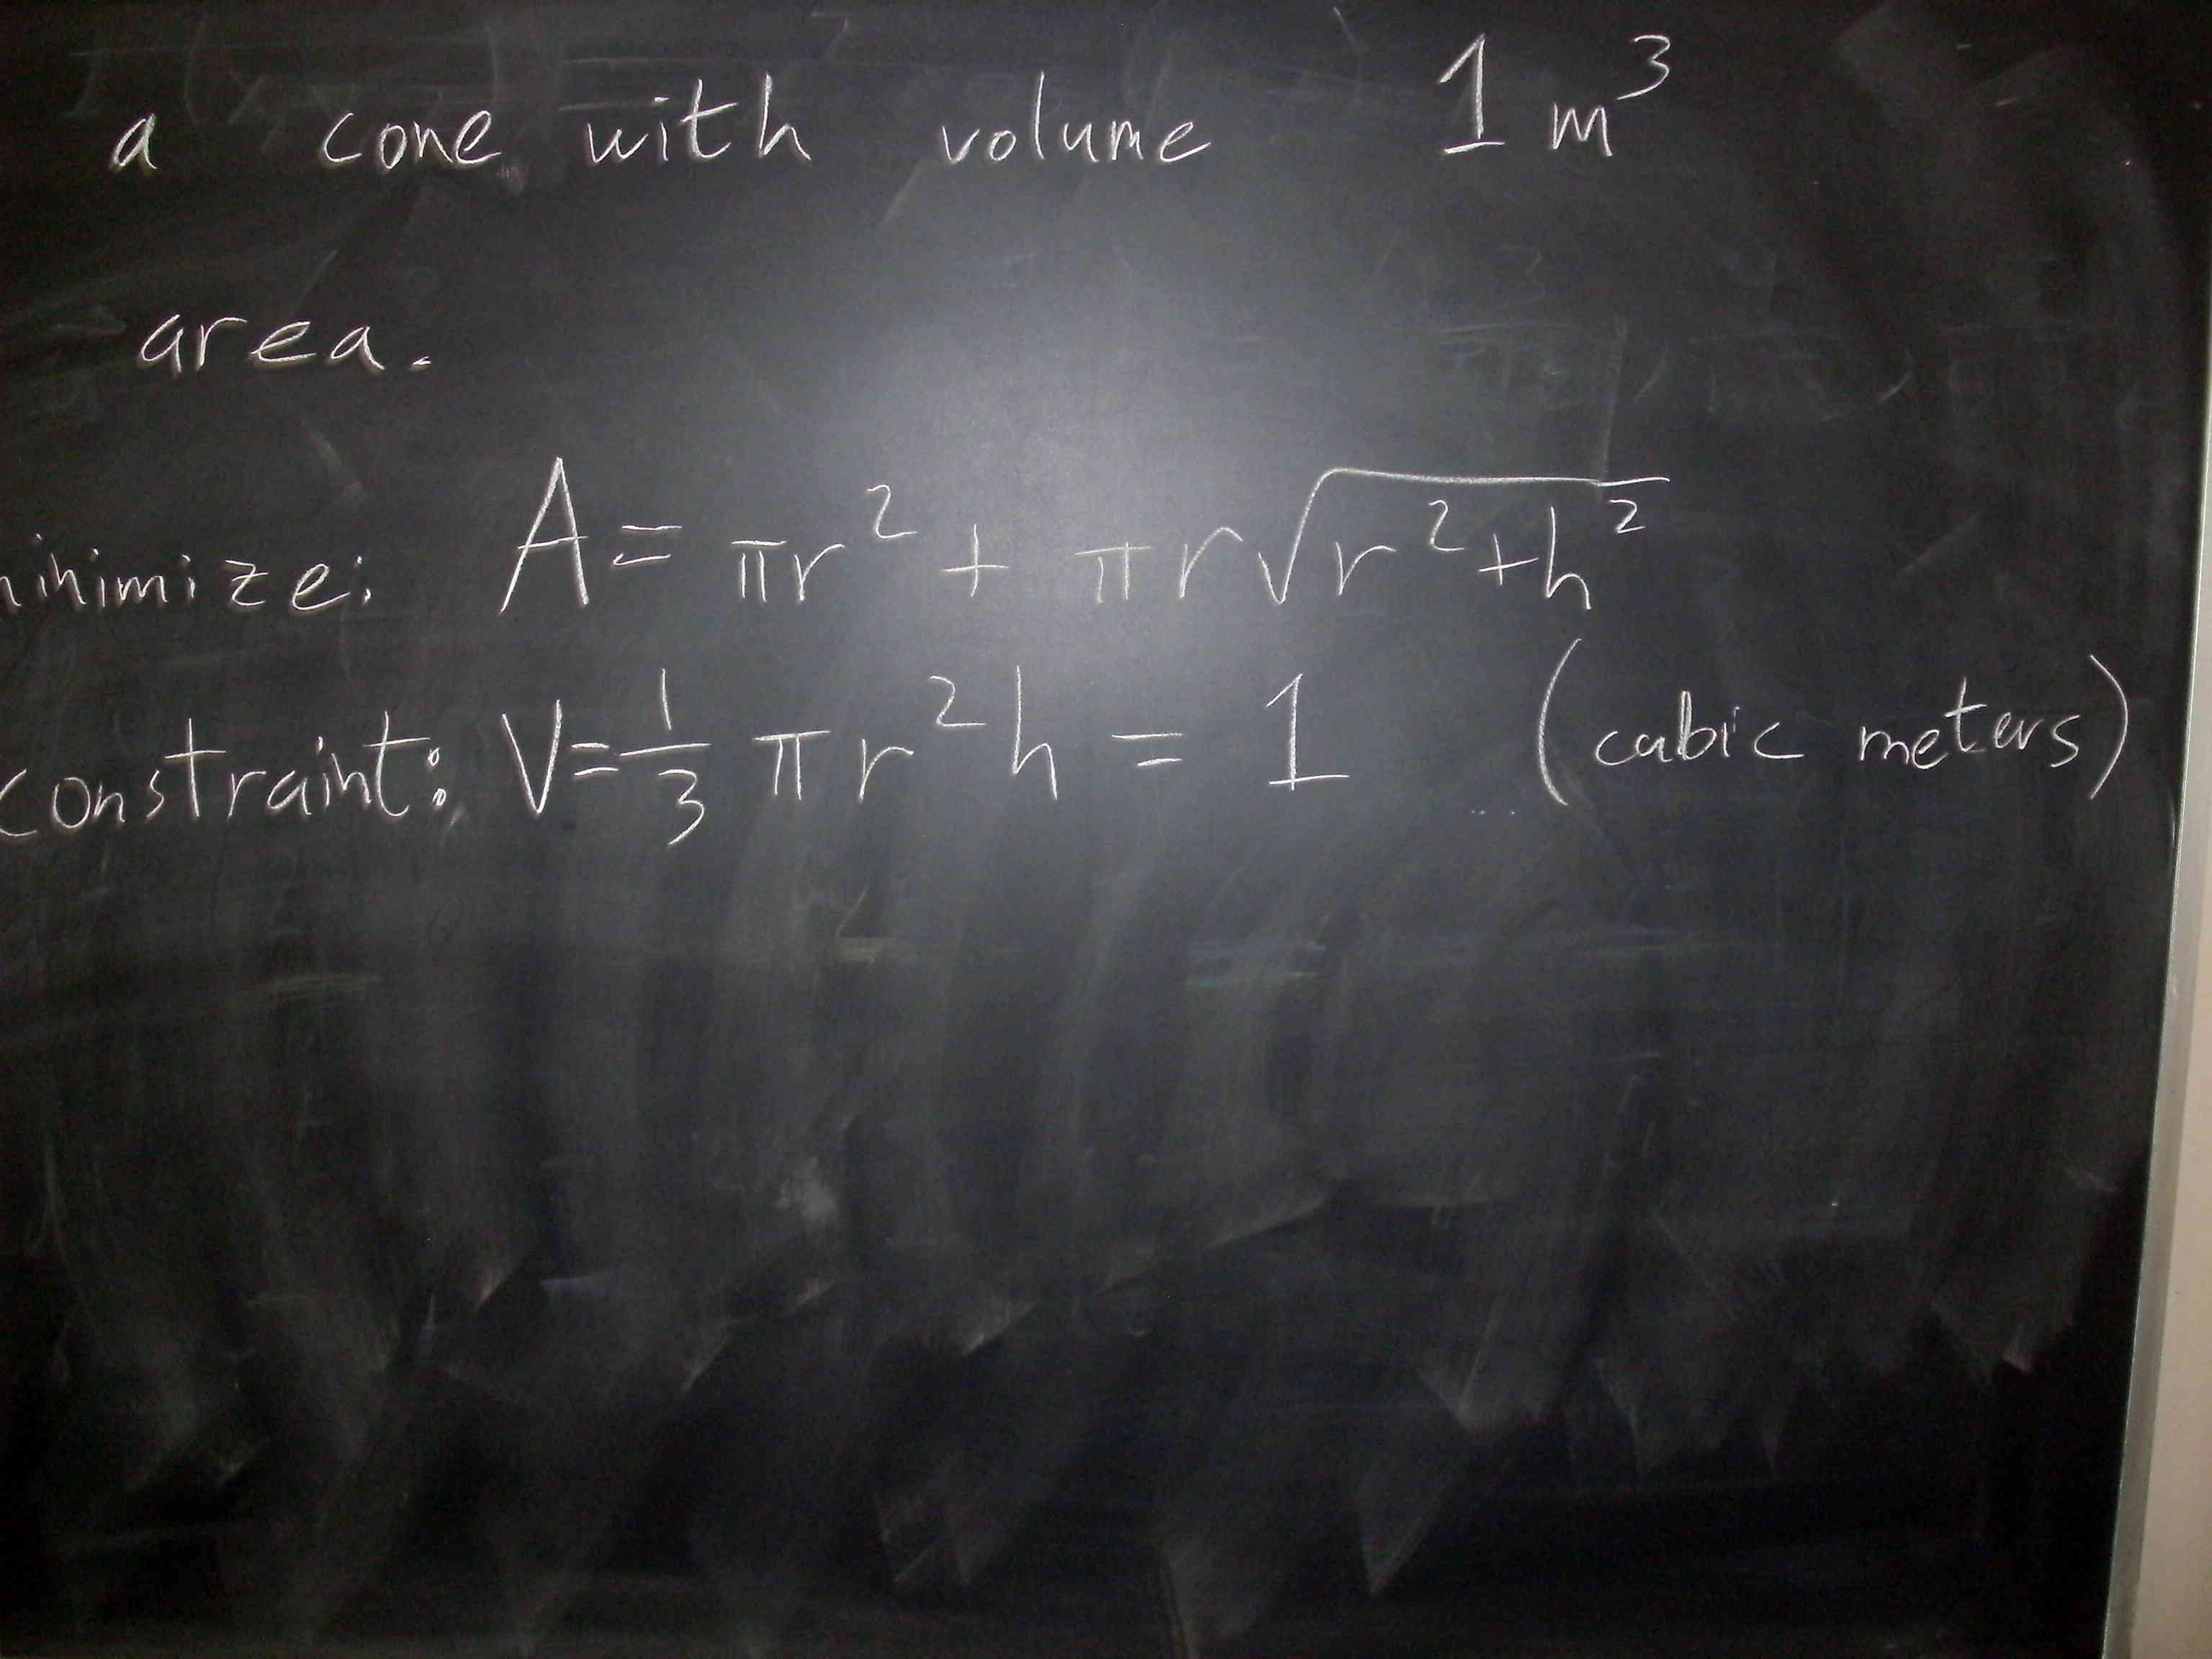 a cone with volume 1 m³
area.
inimize: A = πr² + πr√(r²+h²)
constraint: V = 1/3 πr²h = 1 (cubic meters)